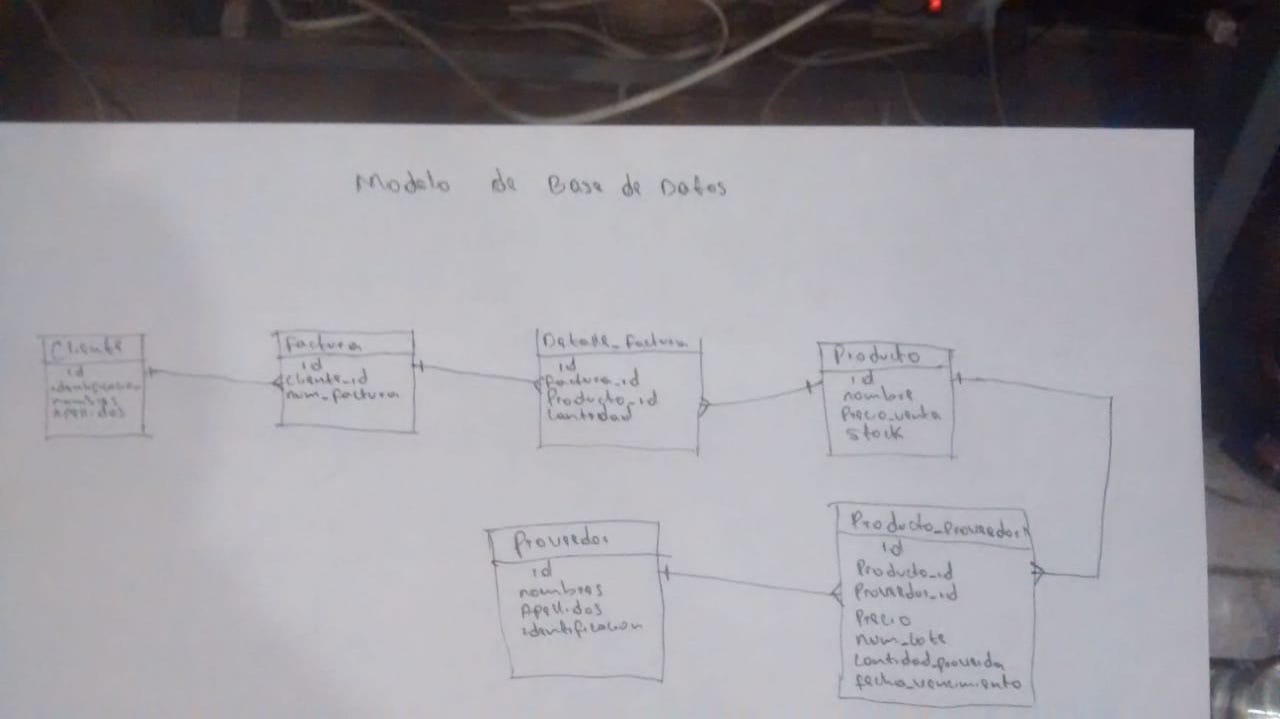 Modelo de Base de Datos
Cliente
id
identificacion
nombres
Apellidos
Factura
id
cliente_id
num_factura
Detalle_factura
id
factura_id
Producto_id
Cantidad
Producto
id
nombre
Precio_venta
stock
Proveedor
id
nombres
Apellidos
identificacion
Producto_Proveedor
id
Producto_id
Proveedor_id
Precio
num_lote
Cantidad_proveida
fecha_vencimiento